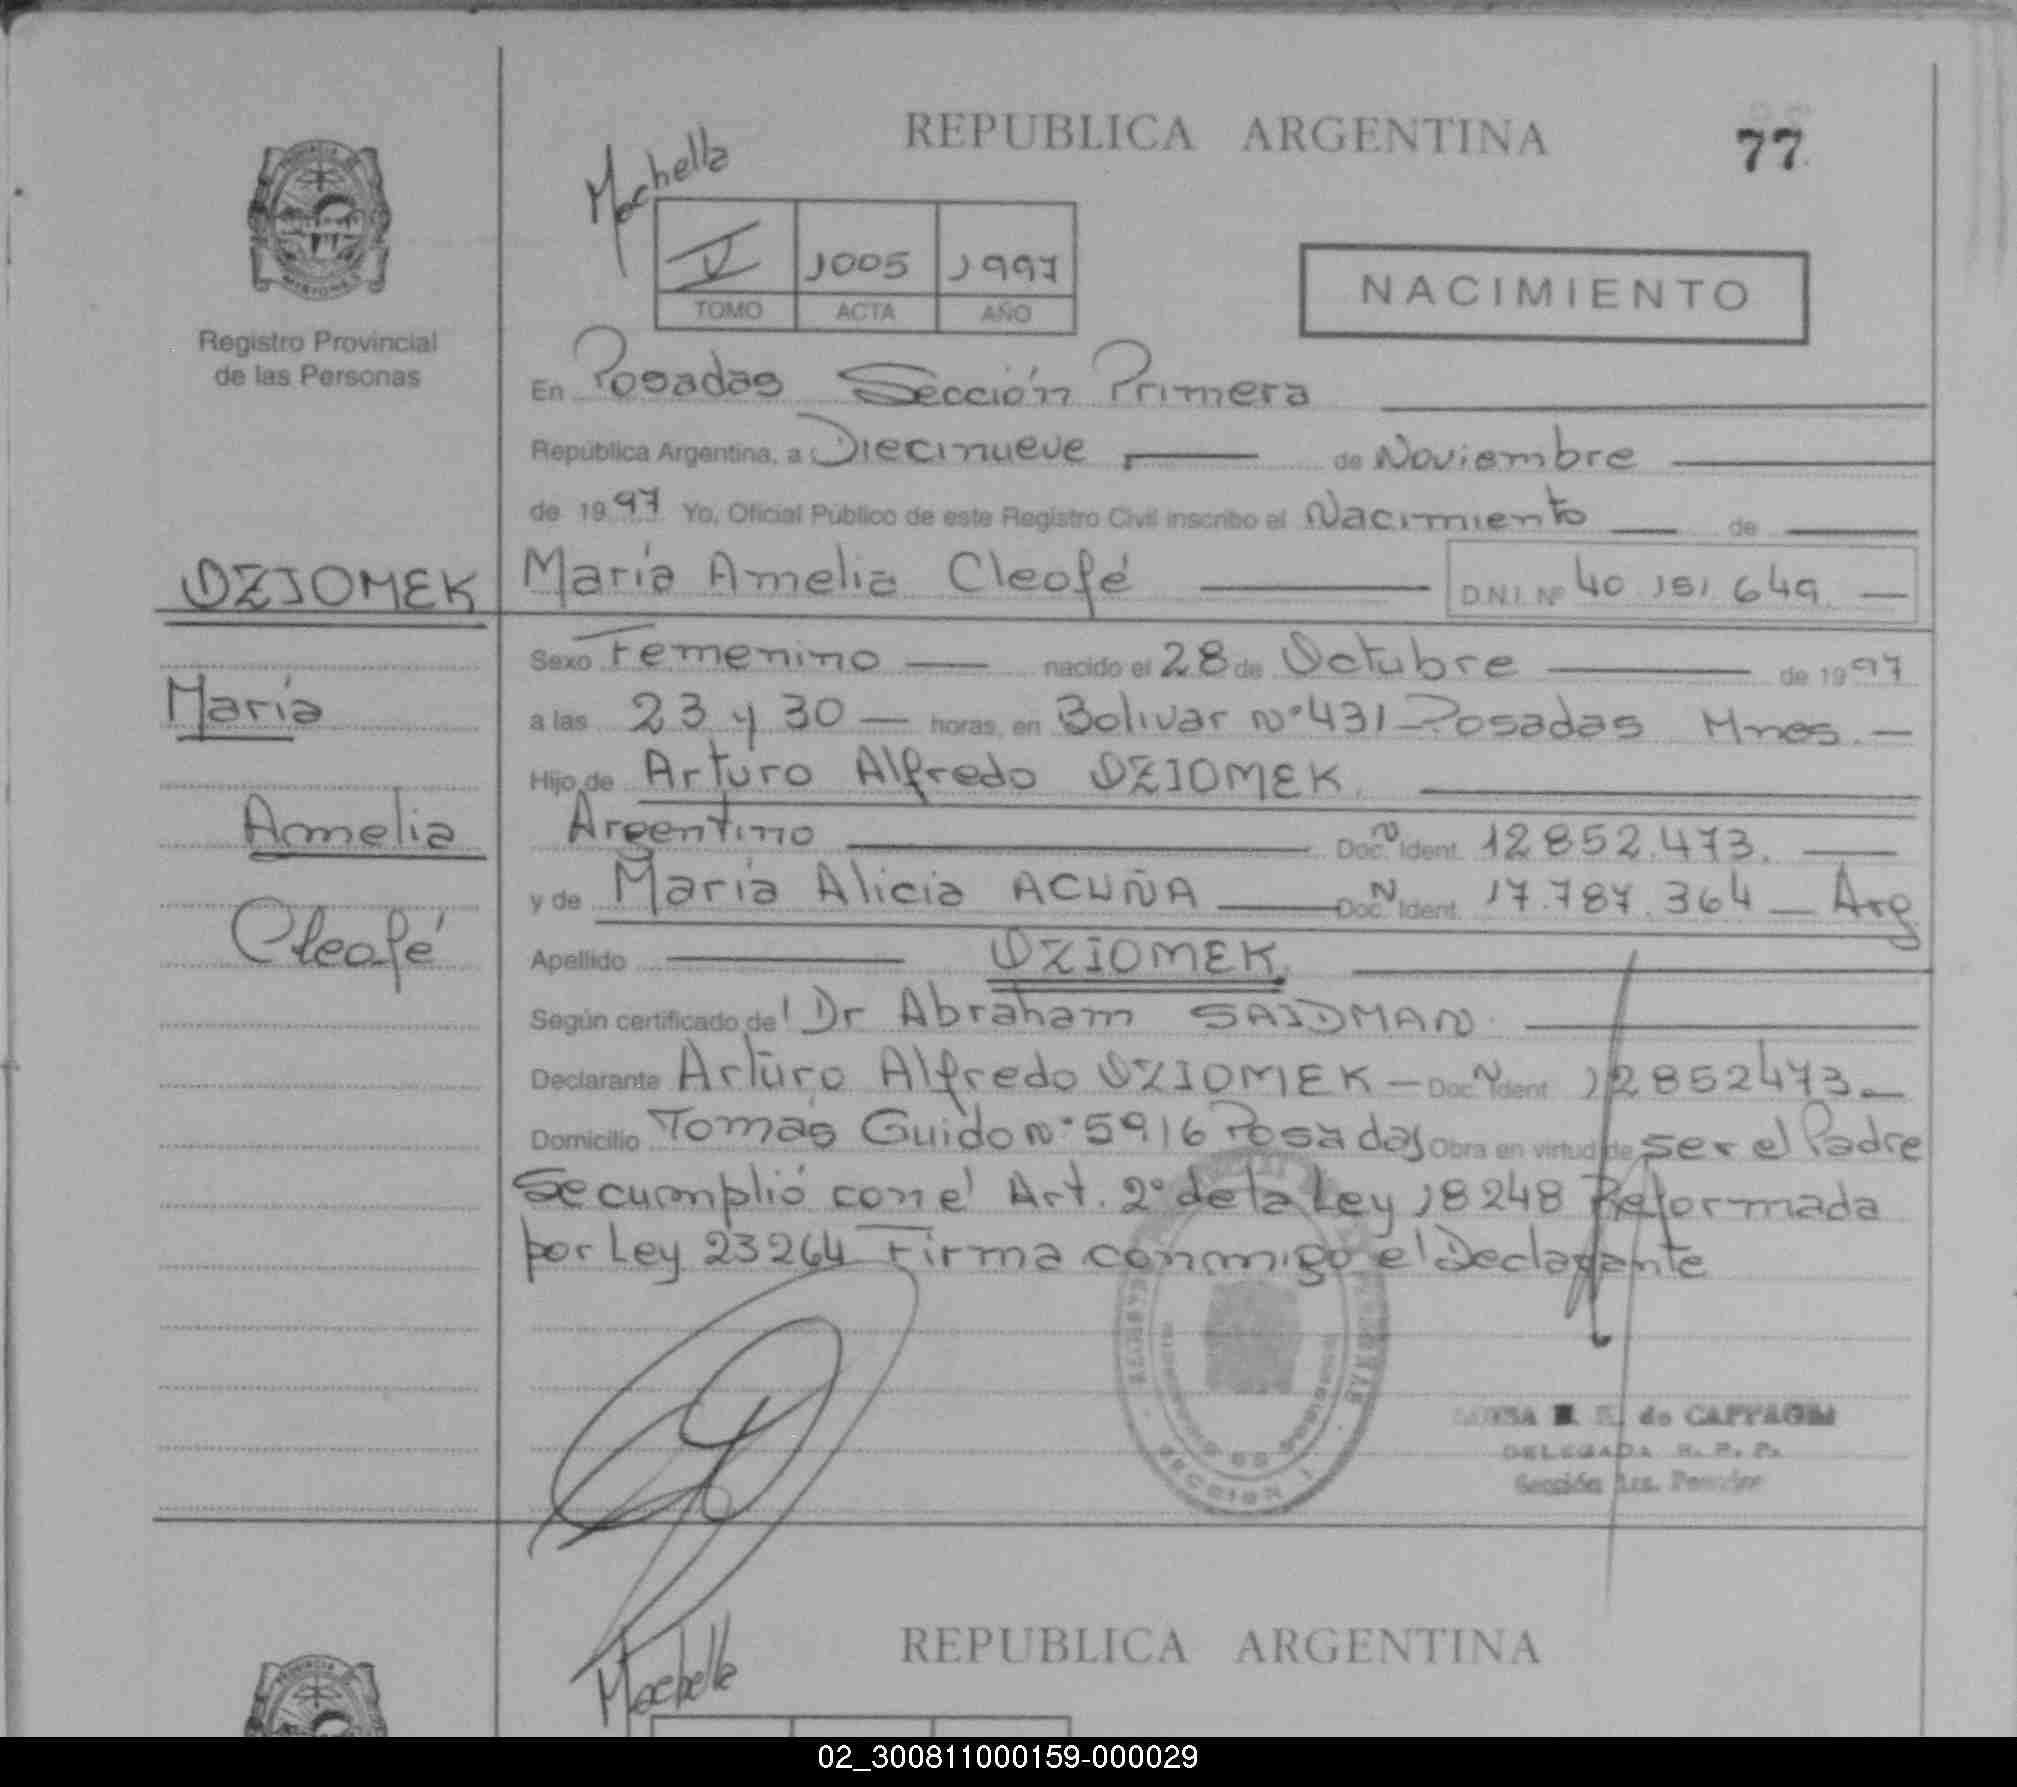 REPUBLICA ARGENTINA
77
Machella
V 1005 1997
TOMO ACTA AÑO
NACIMIENTO
Registro Provincial
de las Personas
En Posadas Sección Primera
República Argentina, a Diecinueve de Noviembre
de 1997 Yo, Oficial Público de este Registro Civil inscribo el Nacimiento de
DZIOMEK María Amelia Cleofé D.N.I. Nº 40 151 649
Sexo Femenino nacido el 28 de Octubre de 1997
María
a las 23 y 30 horas, en Bolivar Nº 431 - Posadas Mnes.
Hijo de Arturo Alfredo DZIOMEK
Amelia
Argentino Doc. N Ident. 12852.473.
y de María Alicia ACUÑA Doc. N Ident. 17.787.364 - Arg
Cleofé
Apellido DZIOMEK
Según certificado del Dr Abraham SAIDMAN
Declarante Arturo Alfredo DZIOMEK - Doc. N Ident 12852473
Domicilio Tomás Guido Nº 5916 Posadas Obra en virtud de ser el Padre
Se cumplió con el Art. 2º de la Ley 18248 Reformada
por Ley 23264 Firma conmigo el Declarante
de CAPPAGLI
DELEGADA R. P. P.
Sección 1ra. Posadas
SECCION 1
REPUBLICA ARGENTINA
Machella
02_300811000159-000029